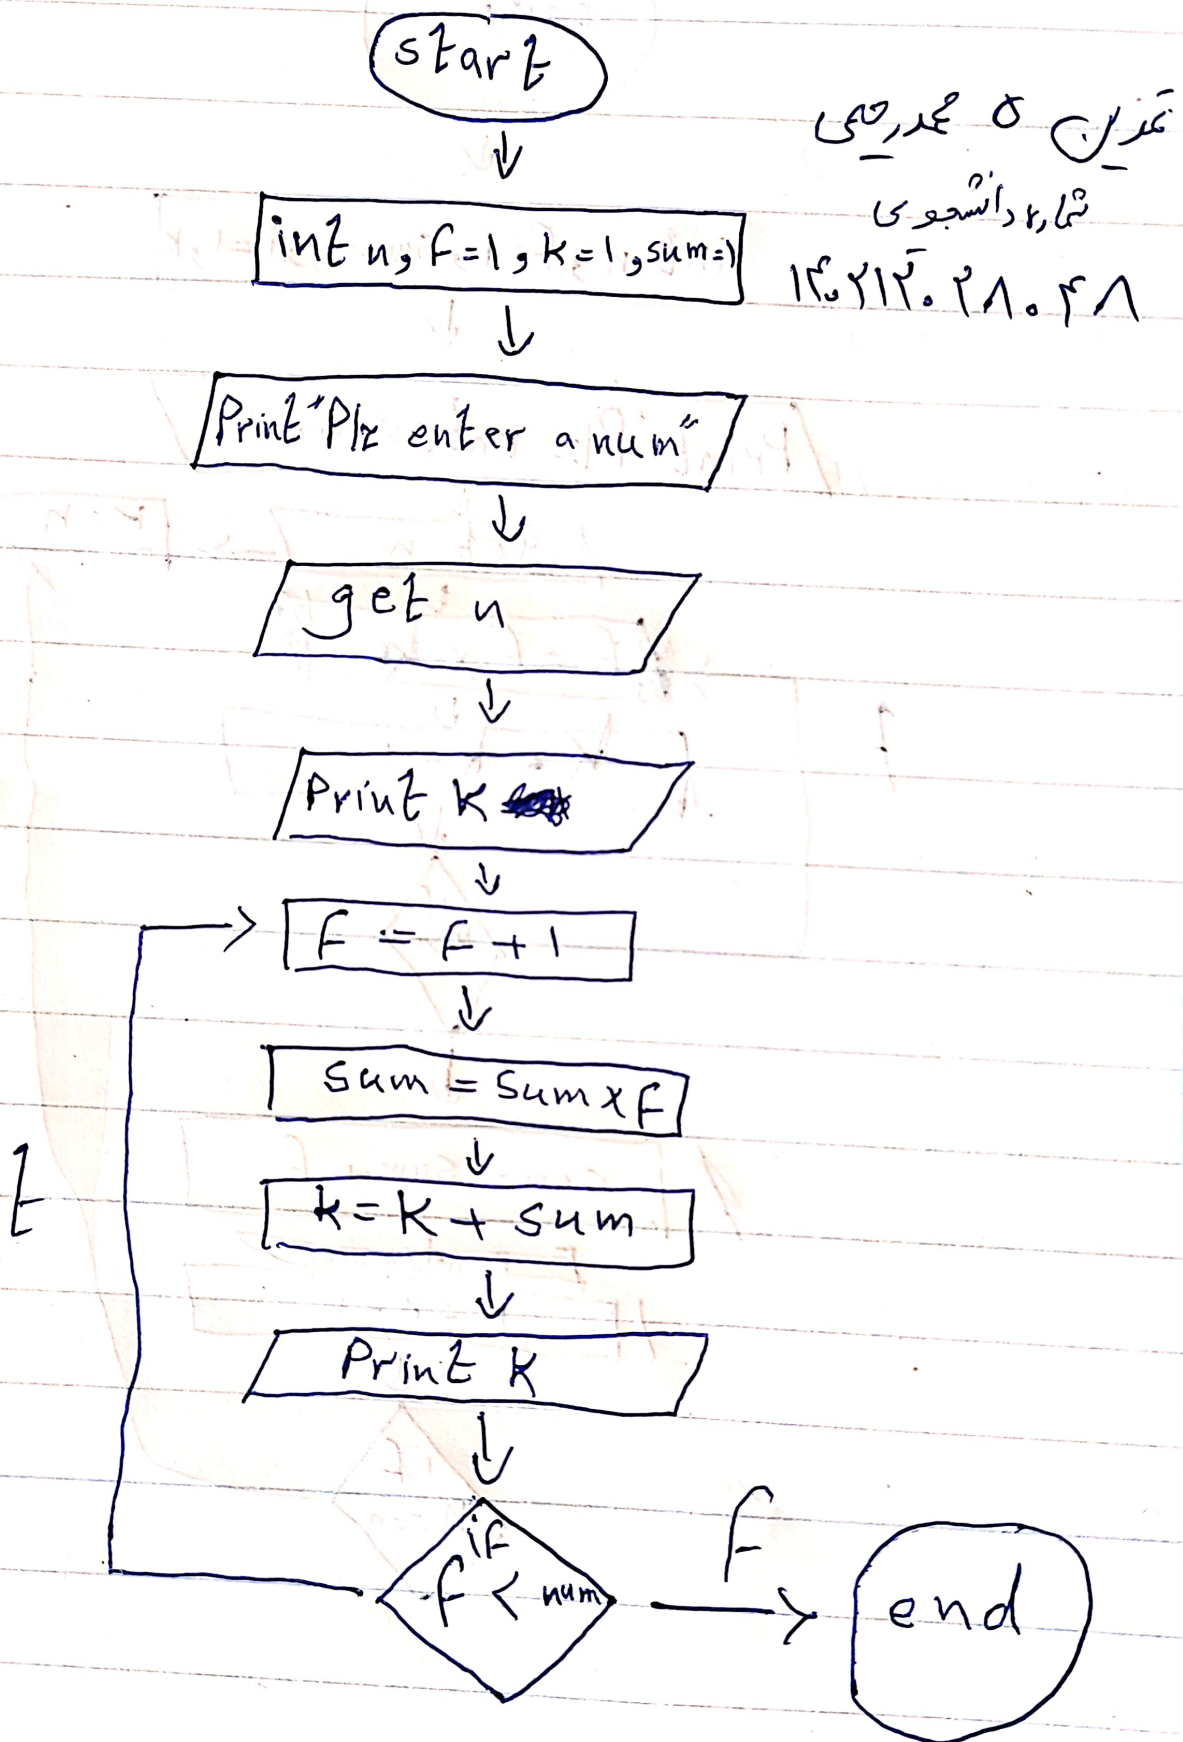 start
تمرین ۵ محمد رحیمی
شماره دانشجوی
int n, f=1, k=1, sum=1
Print "Plz enter a num"
get n
Print k
f = f + 1
sum = sum x f
t
k = k + sum
Print k
if
f < num
f
end